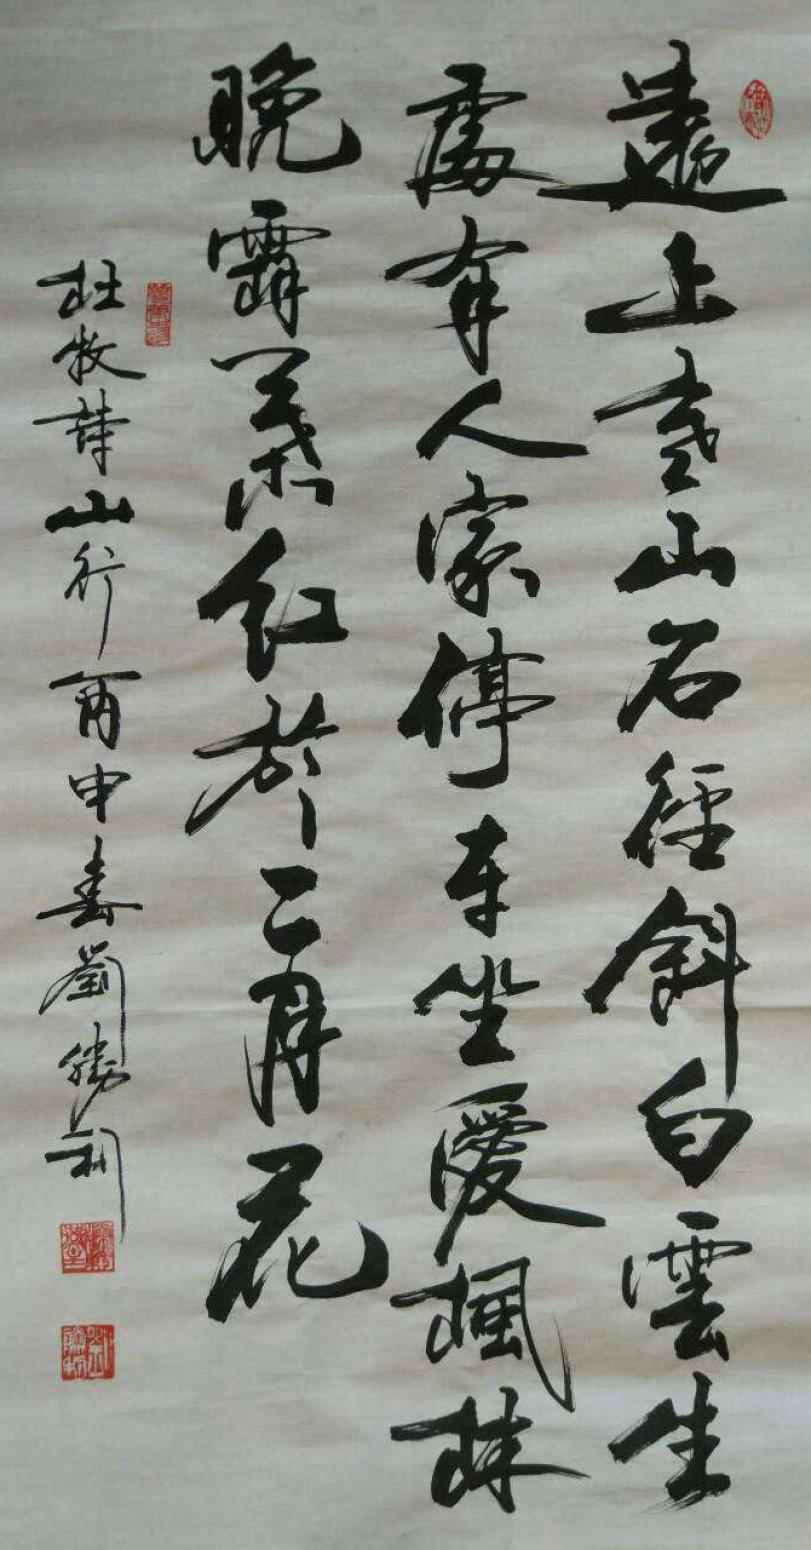 遠上寒山石徑斜白雲生
處有人家停車坐愛楓林
晚霜葉紅於二月花
杜牧詩山行丙申春劉勝利